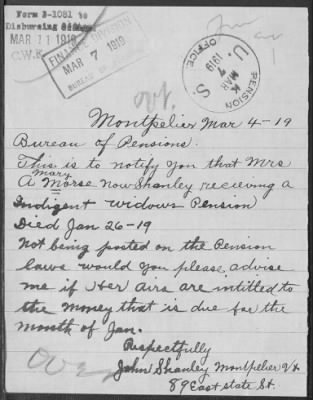 Form 3-1081 to
Disbursing
MAR 11 1919
C.W.K.
FINANCE DIVISION
MAR 7 1919
BUREAU OF
U. S. PENSION OFFICE
MAR 7 1919
Montpelier Mar 4-19
Bureau of Pensions.
This is to notify you that Mrs
Mary
A Morse now Shanley receiving a
Indigent widows Pension
Died Jan 26-19
Not being posted on the Pension
laws would you please advise
me if Her airs are intitled to
the money that is due for the
month of Jan.
Respectfully
John Shanley Montpelier Vt
89 East state St.
Over